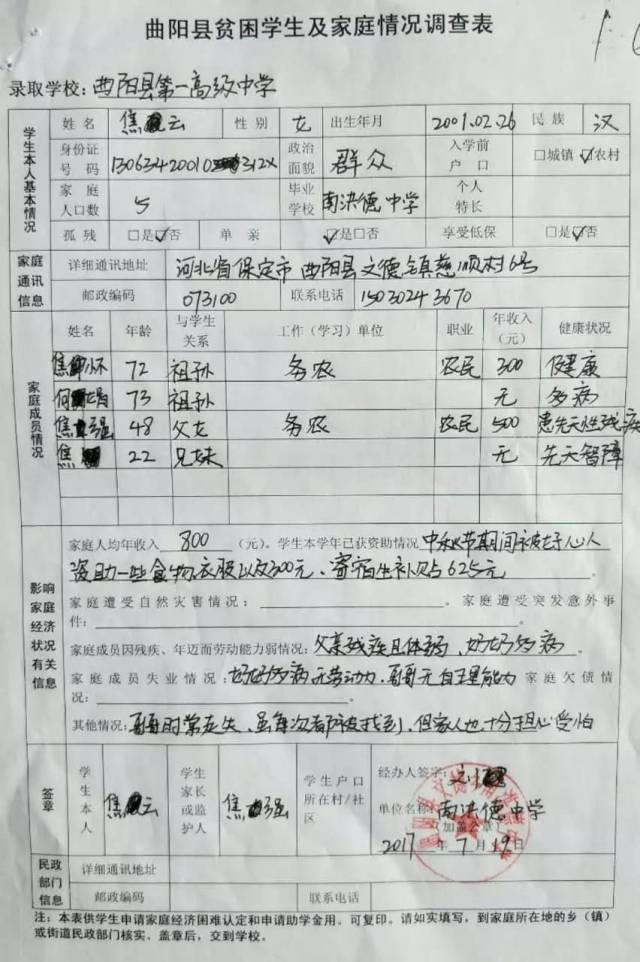 曲阳县贫困学生及家庭情况调查表
录取学校：曲阳县第一高级中学
学生本人基本情况
姓名 焦 云 性别 女 出生年月 2001.02.26 民族 汉
身份证号码 13063420010 312X 政治面貌 群众 入学前户口 □城镇 ☑农村
家庭人口数 5 毕业学校 南洪德中学 个人特长
孤残 □是☑否 单亲 ☑是□否 享受低保 □是☑否
家庭通讯信息
详细通讯地址 河北省保定市曲阳县文德镇慈顺村6号
邮政编码 073100 联系电话 15030243670
家庭成员情况
姓名 年龄 与学生关系 工作（学习）单位 职业 年收入（元） 健康状况
焦 怀 72 祖孙 务农 农民 300 健康
何 73 祖孙 无 多病
焦 强 48 父女 务农 农民 500 患先天性残疾
焦 22 兄妹 无 先天智障
影响家庭经济状况有关信息
家庭人均年收入 800 （元）。学生本学年已获资助情况 中秋节期间被好心人
资助一些食物衣服以及300元、寄宿生补贴625元。
家庭遭受自然灾害情况： 。家庭遭受突发意外事
件： 。
家庭成员因残疾、年迈而劳动能力弱情况：父亲残疾且体弱、奶奶多病。
家庭成员失业情况：奶奶多病无劳动力，哥哥无自理能力 家庭欠债情
况： 。
其他情况：哥哥时常走失，虽每次都被找到，但家人也十分担心受怕
签章
学生本人 焦 云 学生家长或监护人 焦 强 学生户口所在村/社区 经办人签字：刘
单位名称：南洪德中学
（加盖公章）
2017 年 7 月 19 日
民政部门信息
详细通讯地址
邮政编码 联系电话
注：本表供学生申请家庭经济困难认定和申请助学金用。可复印。请如实填写，到家庭所在地的乡（镇）
或街道民政部门核实、盖章后，交到学校。